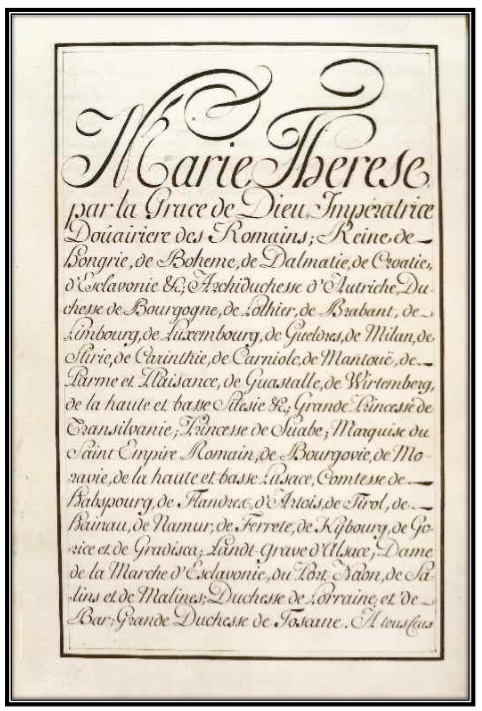 Marie Therese
par la Grace de Dieu Imperatrice
Doüairiere des Romains; Reine de
Hongrie, de Boheme, de Dalmatie, de Croatie,
d'Esclavonie &c; Archiduchesse d'Autriche, Du-
chesse de Bourgogne, de Lothier, de Brabant, de
Limbourg, de Luxembourg, de Gueldres, de Milan, de
Stirie, de Carinthie, de Carniole, de Mantouë, de
Parme et Plaisance, de Guastalle, de Wirtemberg,
de la haute et basse Silesie &c; Grande Princesse de
Transilvanie; Princesse de Suabe; Marquise du
Saint Empire Romain, de Bourgovie, de Mo-
ravie, de la haute et basse Lusace, Comtesse de
Habspourg, de Flandres, d'Artois, de Tirol, de
Hainau, de Namur, de Ferrete, de Kybourg, de Go-
rice et de Gradisca; Landt-grave d'Alsace; Dame
de la Marche d'Esclavonie, du Port-Naon, de Sa-
lins et de Malines; Duchesse de Lorraine et de
Bar; Grande Duchesse de Toscane. A tous Ceux